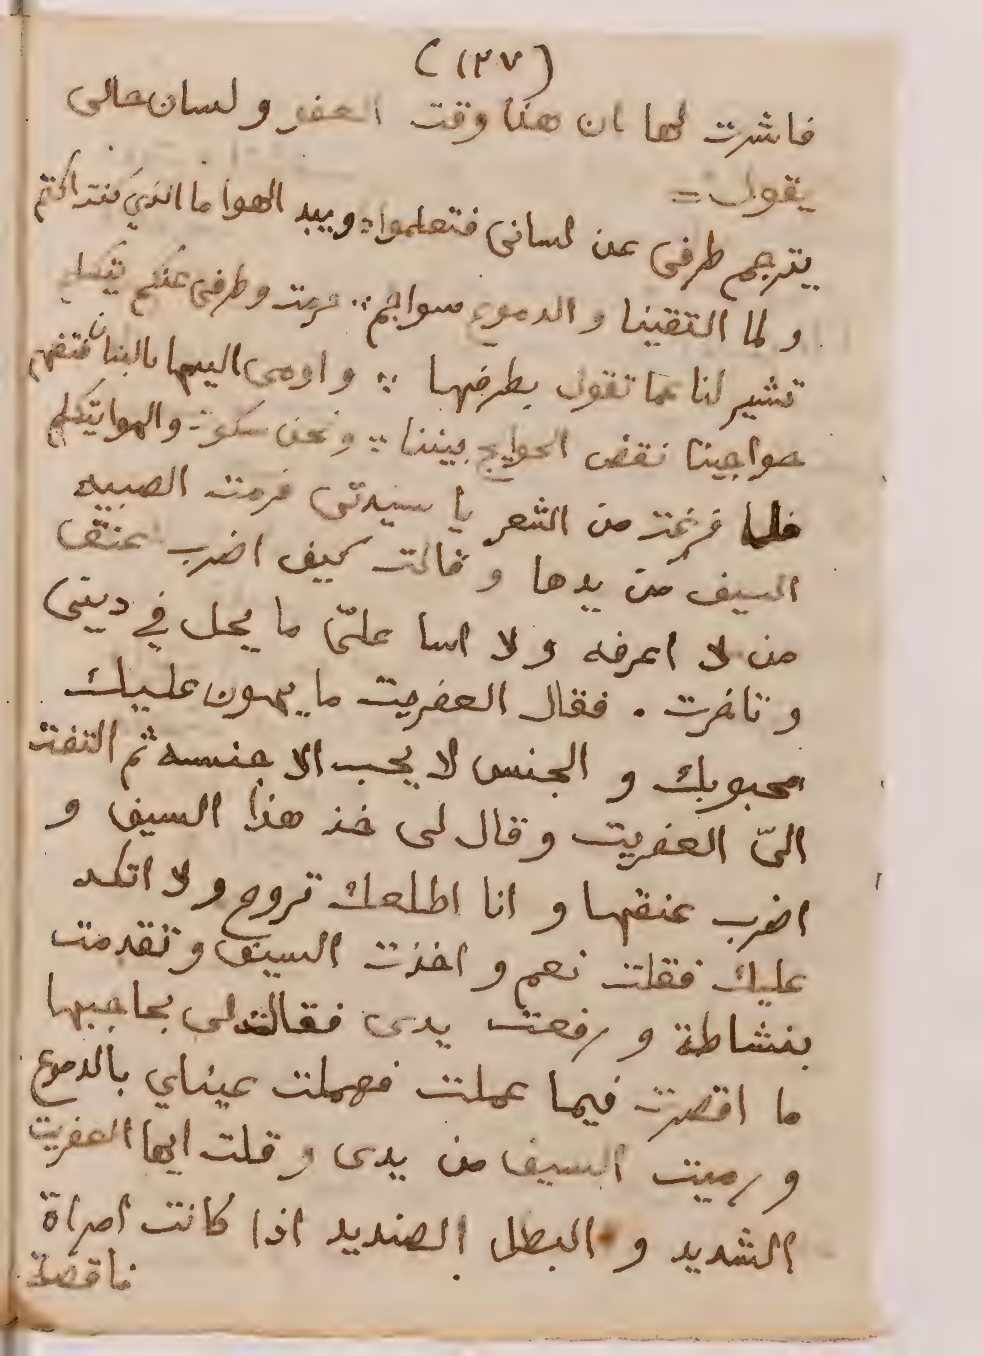 (١٢٧)
فاشرت لها ان هذا وقت العفو ولسان حالى
يقول =
يترجم طرفى عن لسانى فتعلموا :: ويبد الهوا ما الذي كنت اكتم
ولما التقينا والدموع سواجم :: خرمت وطرفى عنكم يتكلم
تشير لنا عما تقول بطرفها :: واومى اليها بالبنان فتفهم
حواجبنا نقض الحوايج بيننا :: ونحن سكوت والهوا يتكلم
فلما فرغت من الشعر يا سيدتى فرمت الصبيه
السيف من يدها وقالت كيف اضرب عنق
من لا اعرفه ولا اسا علىّ ما يحل في دينى
وتاخرت . فقال العفريت ما يهون عليك
محبوبك و الجنس لا يحب الا جنسه ثم التفت
الىّ العفريت وقال لى خذ هذا السيف و
اضرب عنقها و انا اطلعك تروح ولا انكد
عليك فقلت نعم و اخذت السيف وتقدمت
بنشاطة و رفعت يدى فقالت لى بحاجبها
ما اقصرت فيما عملت فهملت عيناي بالدموع
و رميت السيف من يدى وقلت ايها العفريت
الشديد و البطل الصنديد اذا كانت امراة
ناقصة